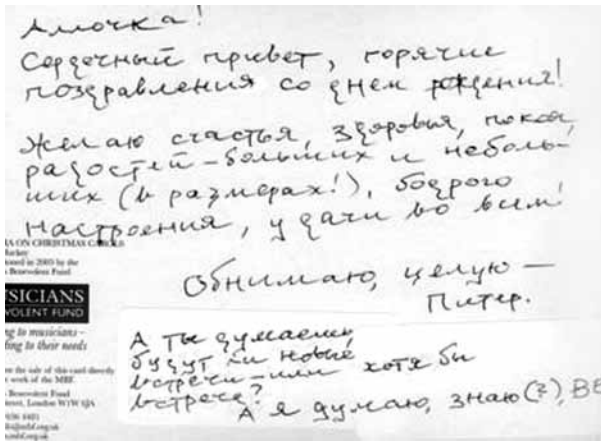 Аллочка!
Сердечный привет, горячие
поздравления со днем рождения!
Желаю счастья, здоровья, покоя,
радостей – больших и неболь-
ших (в размерах!), бодрого
настроения, удачи во всем!
Обнимаю, целую –
Питер.
А ты думаешь,
будут ли новые
встречи – или хотя бы
встреча?
А я думаю, знаю(?), ВЕ
A ON CHRISTMAS CAROLS
in 2005 by the
Benevolent Fund
SICIANS
VOLENT FUND
ng to musicians –
ing to their needs
the sale of this card directly
work of the MBF.
Benevolent Fund
London W1W 6JA